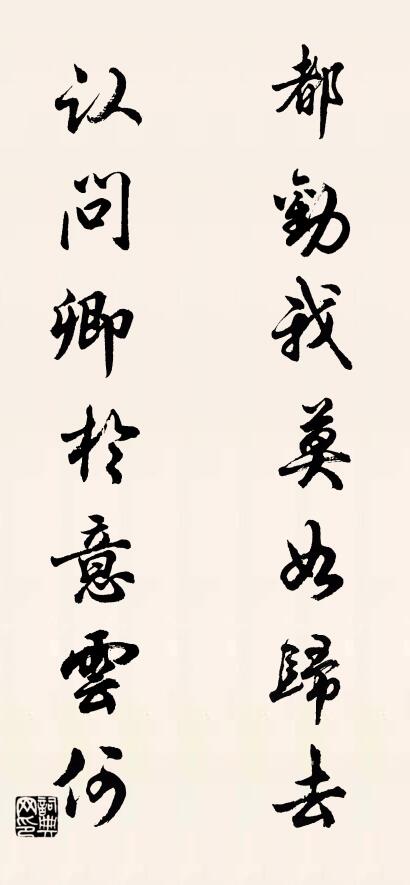 都勸我莫如歸去
认問卿於意雲何
詞典
网印